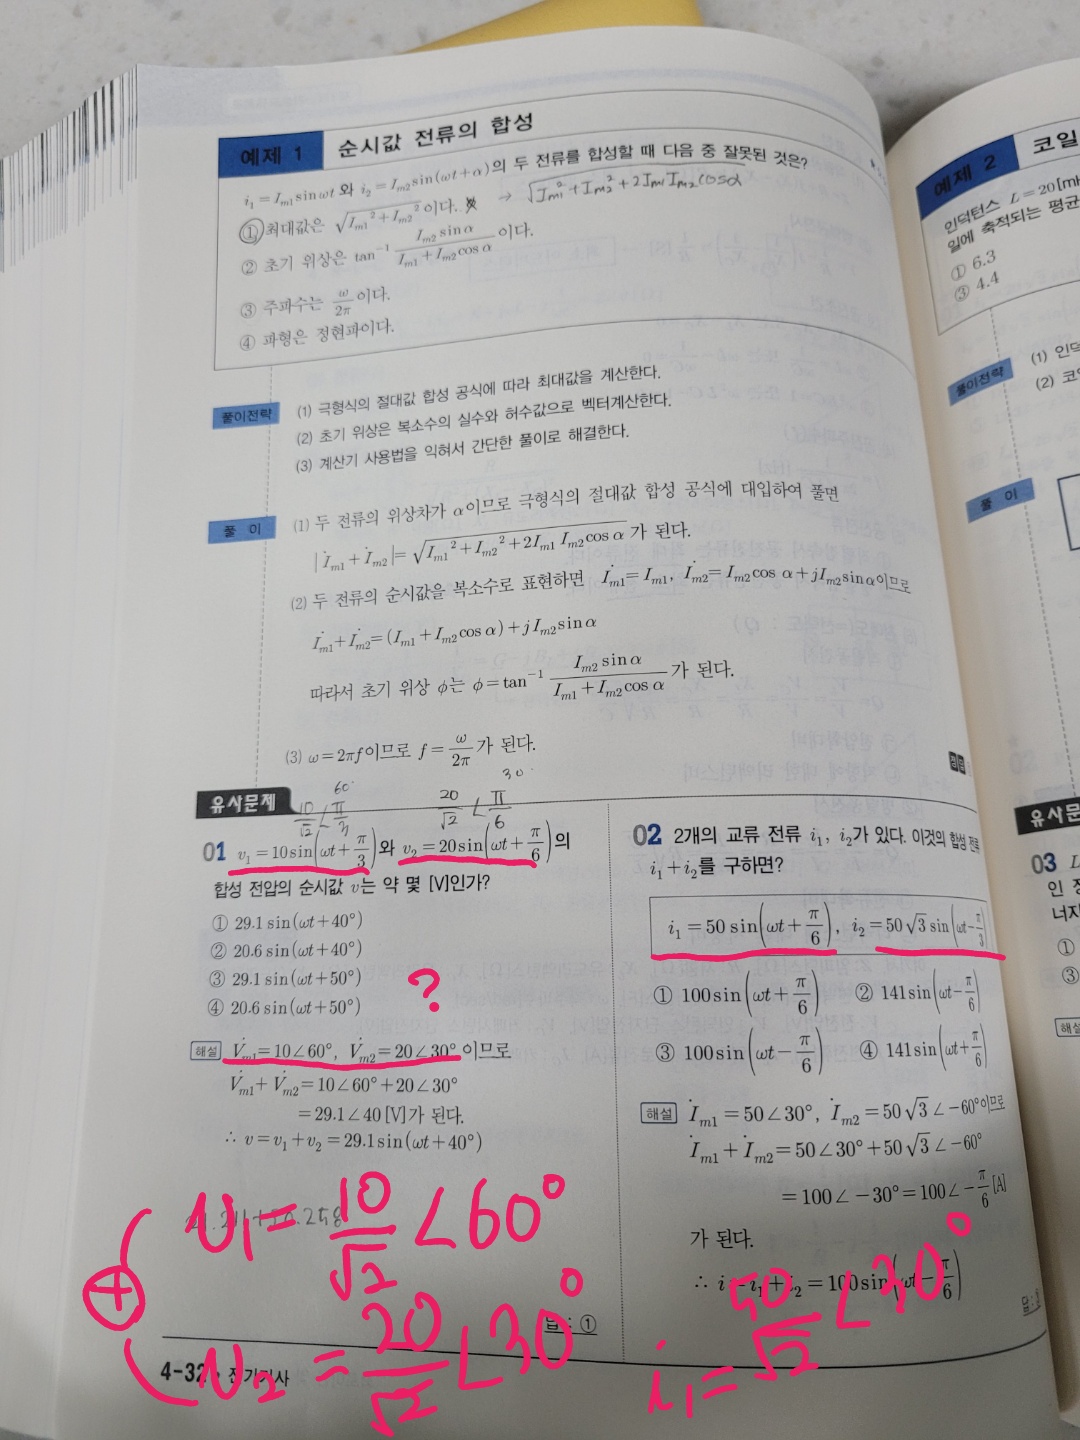 예제 1 순시값 전류의 합성
i₁ = Iₘ₁sinωt 와 i₂ = Iₘ₂sin(ωt+α)의 두 전류를 합성할 때 다음 중 잘못된 것은?
① 최대값은 √(Iₘ₁²+Iₘ₂²) 이다. → √(Iₘ₁²+Iₘ₂²+2Iₘ₁Iₘ₂cosα)
② 초기 위상은 tan⁻¹ (Iₘ₂sinα)/(Iₘ₁+Iₘ₂cosα) 이다.
③ 주파수는 ω/2π 이다.
④ 파형은 정현파이다.
풀이전략 (1) 극형식의 절대값 합성 공식에 따라 최대값을 계산한다.
(2) 초기 위상은 복소수의 실수와 허수값으로 벡터계산한다.
(3) 계산기 사용법을 익혀서 간단한 풀이로 해결한다.
풀 이 (1) 두 전류의 위상차가 α이므로 극형식의 절대값 합성 공식에 대입하여 풀면
|İₘ₁+İₘ₂| = √(Iₘ₁²+Iₘ₂²+2Iₘ₁Iₘ₂cosα) 가 된다.
(2) 두 전류의 순시값을 복소수로 표현하면 İₘ₁=Iₘ₁, İₘ₂=Iₘ₂cosα+jIₘ₂sinα이므로
İₘ₁+İₘ₂=(Iₘ₁+Iₘ₂cosα)+jIₘ₂sinα
따라서 초기 위상 φ는 φ=tan⁻¹ (Iₘ₂sinα)/(Iₘ₁+Iₘ₂cosα) 가 된다.
(3) ω=2πf이므로 f=ω/2π 가 된다.
유사문제
60°
10/√2 ∠π/3
30°
20/√2 ∠π/6
01 v₁=10sin(ωt+π/3)와 v₂=20sin(ωt+π/6)의
합성 전압의 순시값 v는 약 몇 [V]인가?
① 29.1sin(ωt+40°)
② 20.6sin(ωt+40°)
③ 29.1sin(ωt+50°)
④ 20.6sin(ωt+50°)
?
해설 V̇ₘ₁=10∠60°, V̇ₘ₂=20∠30°이므로
V̇ₘ₁+V̇ₘ₂=10∠60°+20∠30°
=29.1∠40[V]가 된다.
∴ v=v₁+v₂=29.1sin(ωt+40°)
⊕
v₁ = 10/√2 ∠60°
v₂ = 20/√2 ∠30°
답 : ①
4-32 • 전기기사
02 2개의 교류 전류 i₁, i₂가 있다. 이것의 합성 전류
i₁+i₂를 구하면?
i₁=50sin(ωt+π/6), i₂=50√3sin(ωt-π/3)
① 100sin(ωt+π/6) ② 141sin(ωt-π/6)
③ 100sin(ωt-π/6) ④ 141sin(ωt+π/6)
해설 İₘ₁=50∠30°, İₘ₂=50√3∠-60°이므로
İₘ₁+İₘ₂=50∠30°+50√3∠-60°
=100∠-30°=100∠-π/6[A]
가 된다.
∴ i=i₁+i₂=100sin(ωt-π/6)
i₁ = 50/√2 ∠30°
예제 2 코일
인덕턴스 L=20[mH
일에 축적되는 평균
① 6.3
③ 4.4
풀이전략 (1) 인덕
(2) 코
풀 이
유사문
03 L
①
③